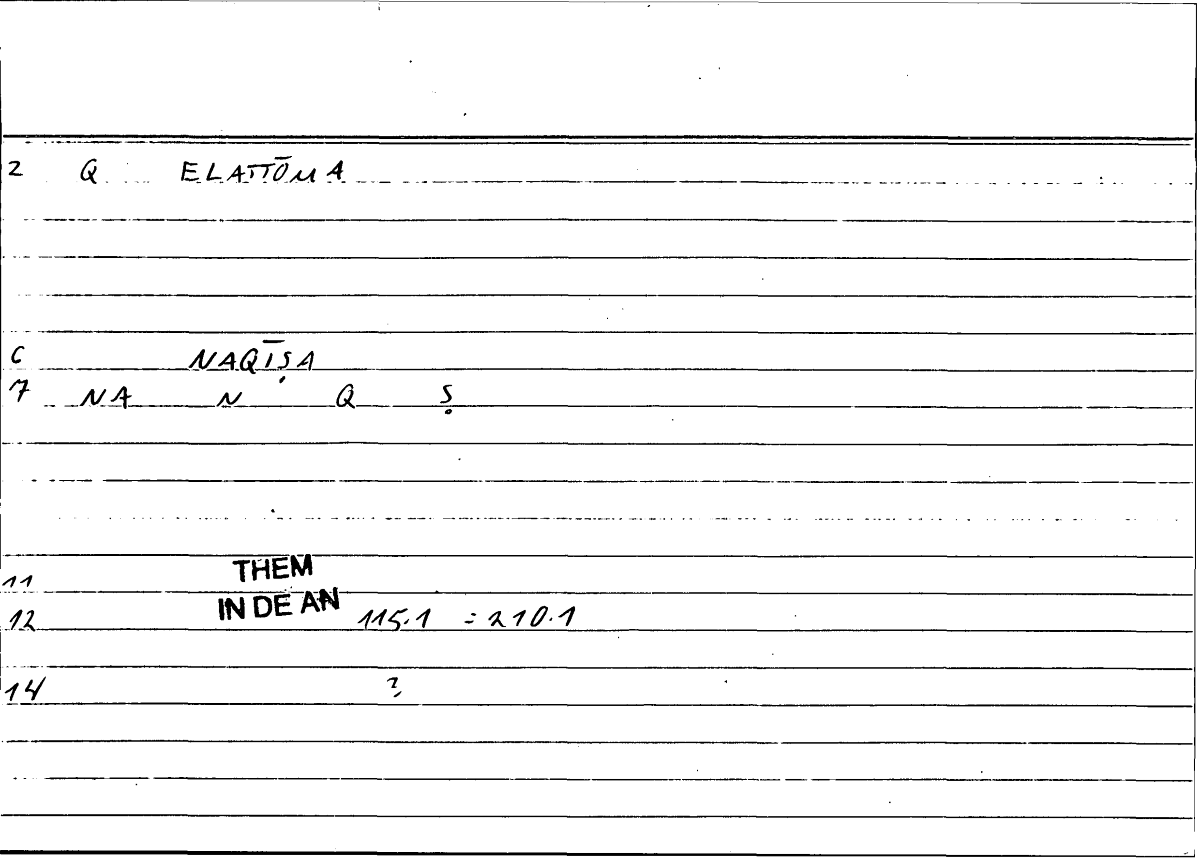 2 Q ELATTŌMA
6 NAQĪṢA
7 NA N Q Ṣ
11 THEM
12 IN DE AN 115.1 = 210.1
14 ?